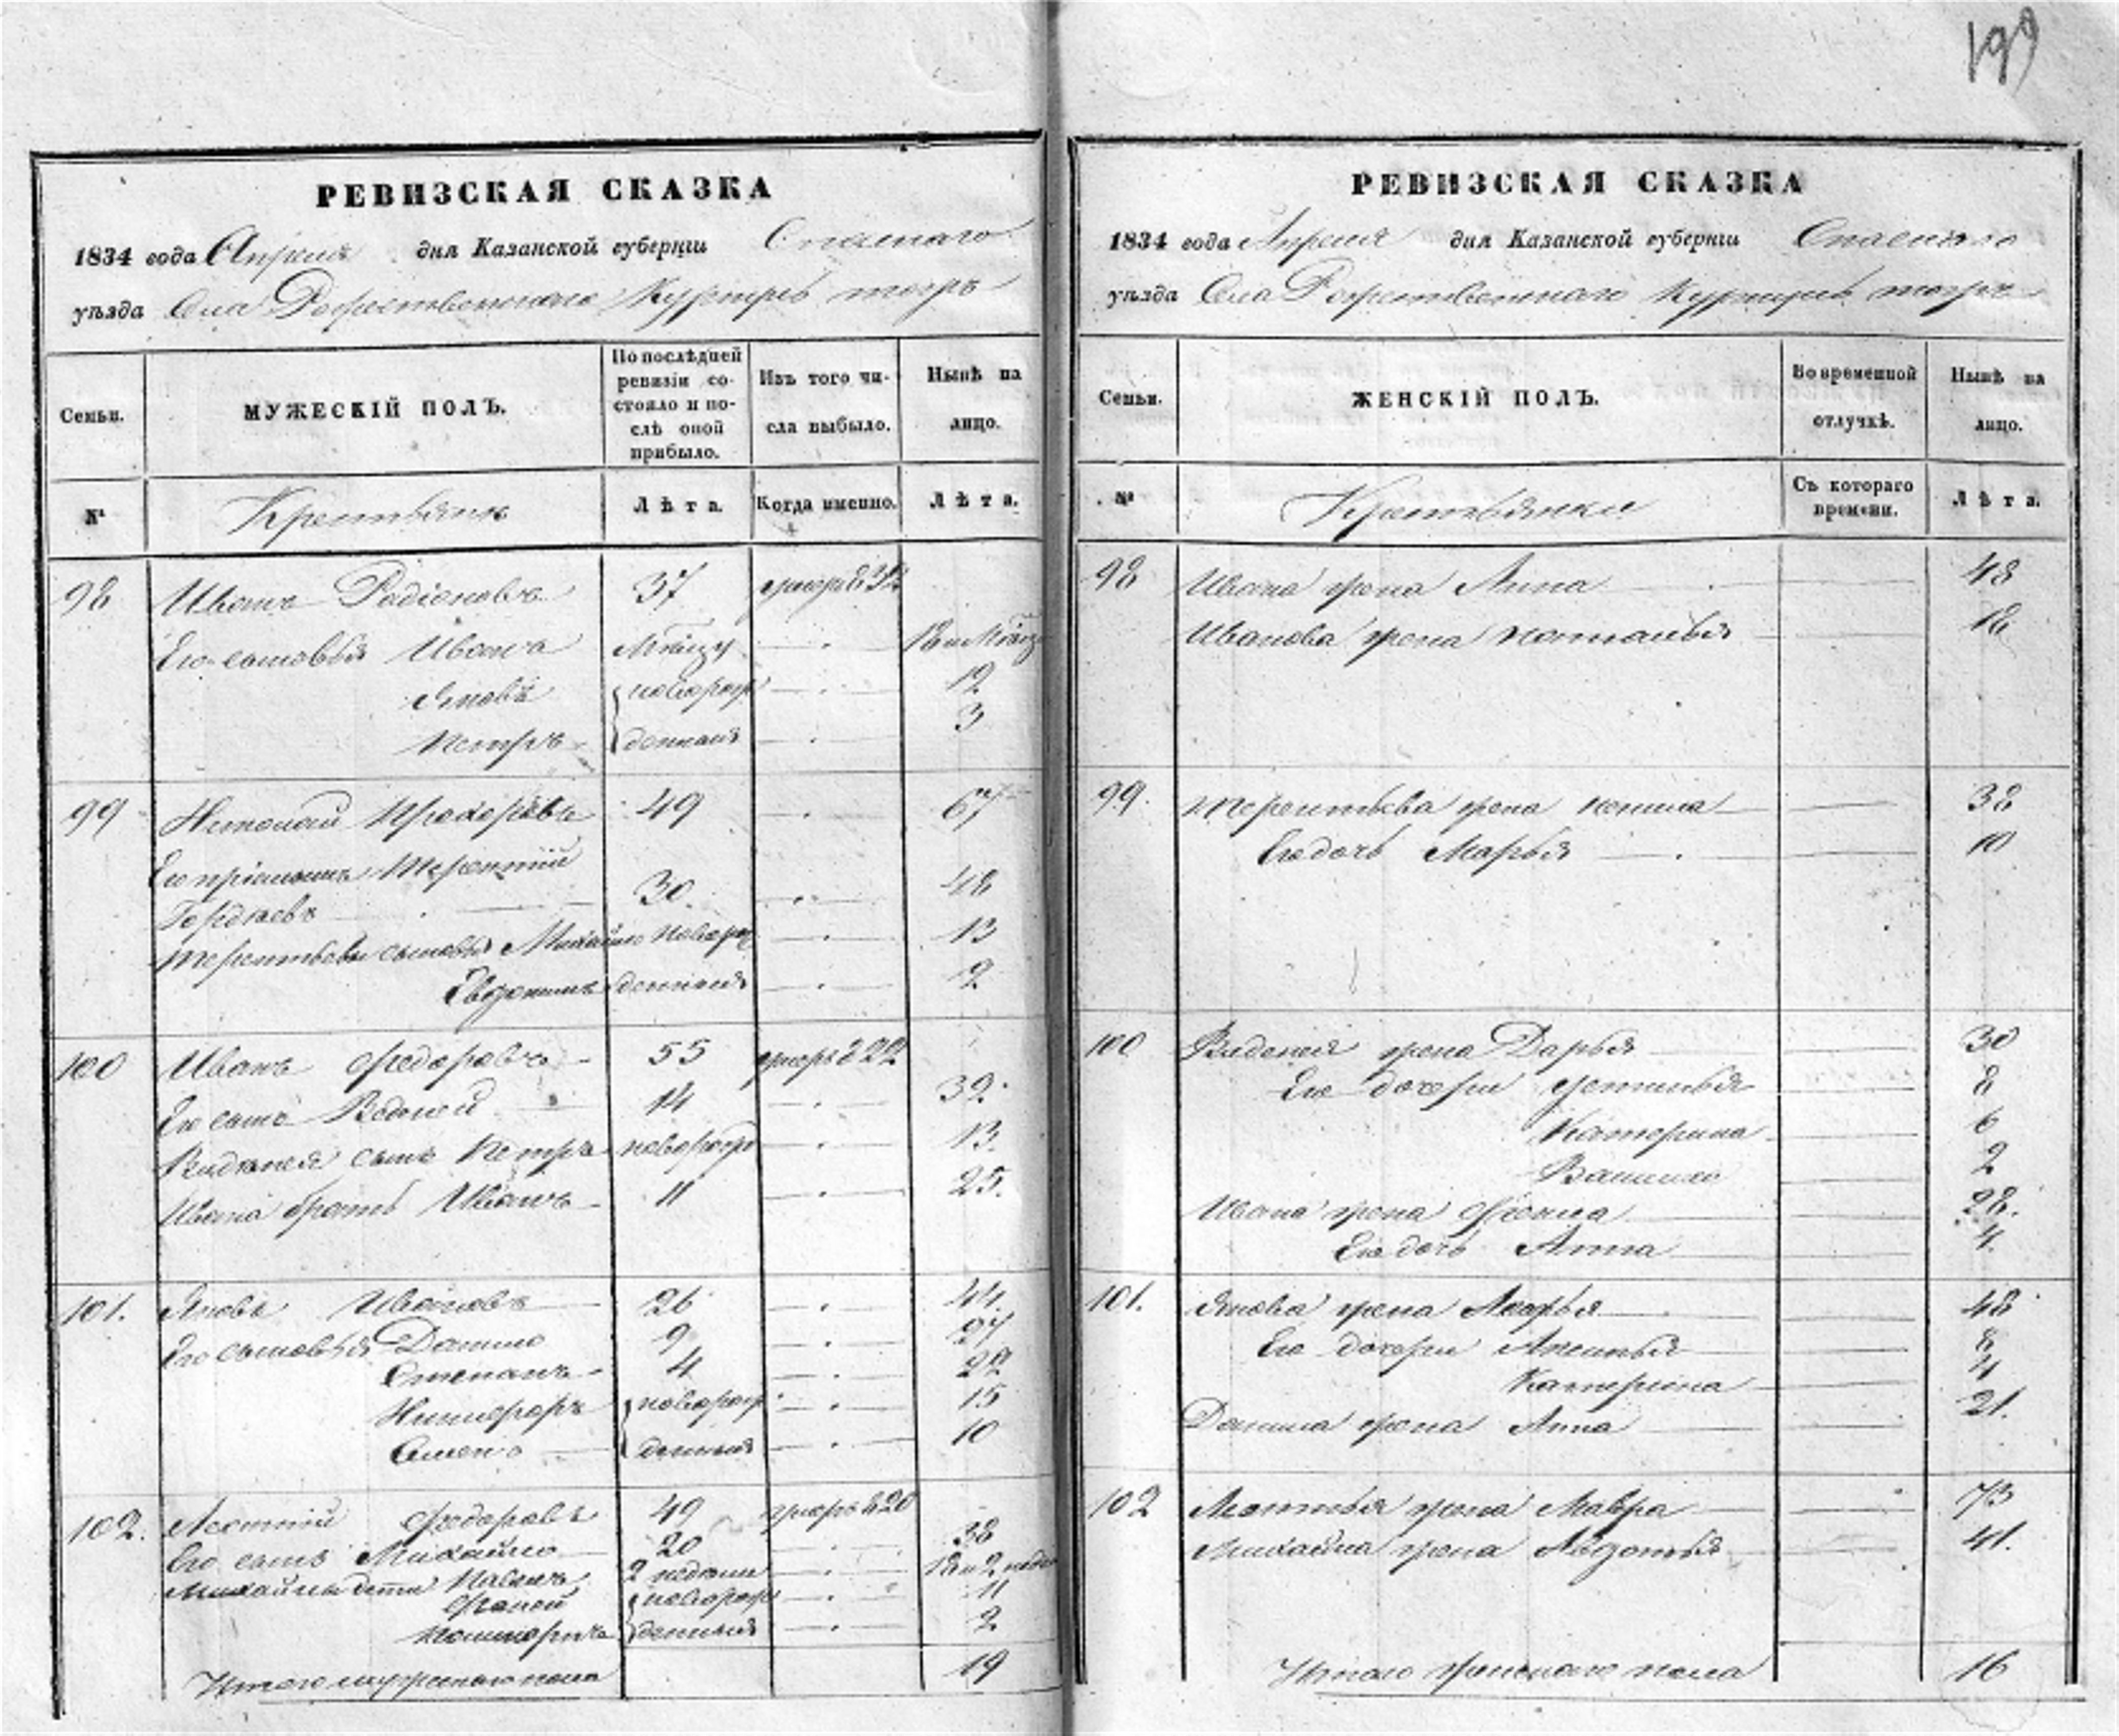 199
РЕВИЗСКАЯ СКАЗКА
1834 года Апреля дня Казанской губерніи Спаскаго
уѣзда Села Рожественскаго тожъ
Семьи.
МУЖЕСКІЙ ПОЛЪ.
По послѣдней ревизіи состояло и послѣ оной прибыло.
Изъ того числа выбыло.
Нынѣ на лицо.
№
Крестьяне
Лѣта.
Когда именно.
Лѣта.
98 Иванъ Радіоновъ 37
Его сыновья Ивана
Яковъ новорож 12
Петръ денныя 3
99 Прохоровъ 49 67
Его Терентій
30 48
Терентьевы сыновья Михайло новорож 13
денныя 2
100 Иванъ Федоровъ 55
Его сынъ 14 32
сынъ Петръ новорожд 13
Ивана братъ Иванъ 11 25
101. Яковъ Ивановъ 26 44
Его сыновья Данило 9 27
Степанъ 4 22
Никифоръ новорож 15
Семенъ денныя 10
102. Федоровъ 49
Его сынъ Михайло 20 38
Михайлы дети Павелъ 2 недели 18 и 2 недел
новорож 11
денныя 2
Итого мужескаго пола 19
РЕВИЗСКАЯ СКАЗКА
1834 года Апреля дня Казанской губерніи Спаскаго
уѣзда Села Рожественскаго тожъ
Семьи.
ЖЕНСКІЙ ПОЛЪ.
Во временной отлучкѣ.
Нынѣ на лицо.
№
Крестьянки
Съ котораго времени.
Лѣта.
98 Ивана жена Анна 48
Иванова жена Наталья 18
99. Терентьева жена 38
Его дочь Марья 10
100 жена Дарья 30
Его дочери Устинья 8
Катерина 6
2
Ивана жена 28.
Его дочь Анна 4.
101. Якова жена 48
Его дочери Аксинья 8
Катерина 4
Данила жена Анна 21.
102 жена Мавра 73
Михайла жена Авдотья 41.
Итого женскаго пола 16